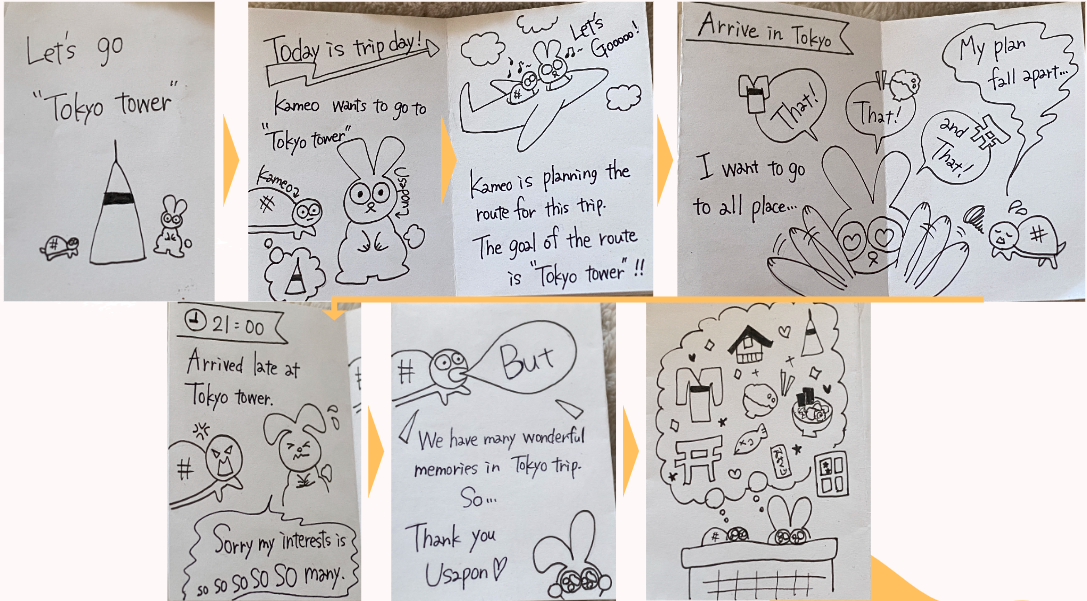 Let's go
"Tokyo tower"
Today is trip day!
Kameo wants to go to
"Tokyo tower"
Kameo
Usapon
Let's
Gooooo!
Kameo is planning the
route for this trip.
The goal of the route
is "Tokyo tower" !!
Arrive in Tokyo
That!
That!
and
That!
I want to go
to all place...
My plan
fall apart...
21:00
Arrived late at
Tokyo tower.
Sorry my interests is
so so so so so many.
But
We have many wonderful
memories in Tokyo trip.
So...
Thank you
Usapon♡